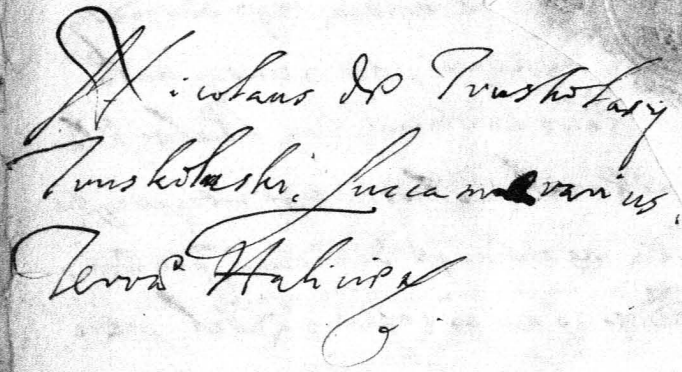 Nicolaus de Truskolasy
Truskolaski, Succamerarius.
Terrae Halicien